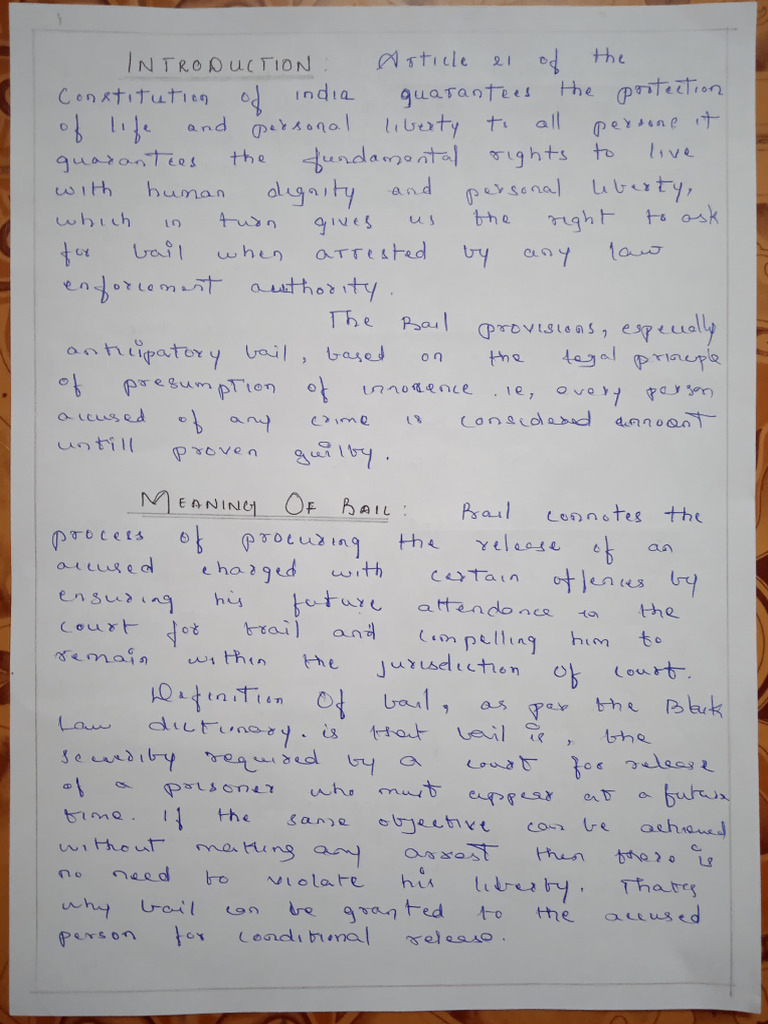 INTRODUCTION: Article 21 of the
Constitution of india guarantees the protection
of life and personal liberty to all persons it
guarantees the fundamental rights to live
with human dignity and personal liberty,
which in turn gives us the right to ask
for bail when arrested by any law
enforcement authority.
The Bail provisions, especially
anticipatory bail, based on the legal principle
of presumption of innocence .ie, every person
accused of any crime is considered
untill proven guilty.
MEANING OF BAIL: Bail connotes the
process of procuring the release of an
accused charged with certain offences by
ensuring his future attendance in the
court for trail and compelling him to
remain within the jurisdiction of court.
Definition Of bail, as per the Black
Law dictionary. is that bail is, the
security required by a court for release
of a prisoner who must appear at a future
time. If the same objective can be achieved
without making any arrest then there is
no need to violate his liberty. Thats
why bail can be granted to the accused
person for conditional release.